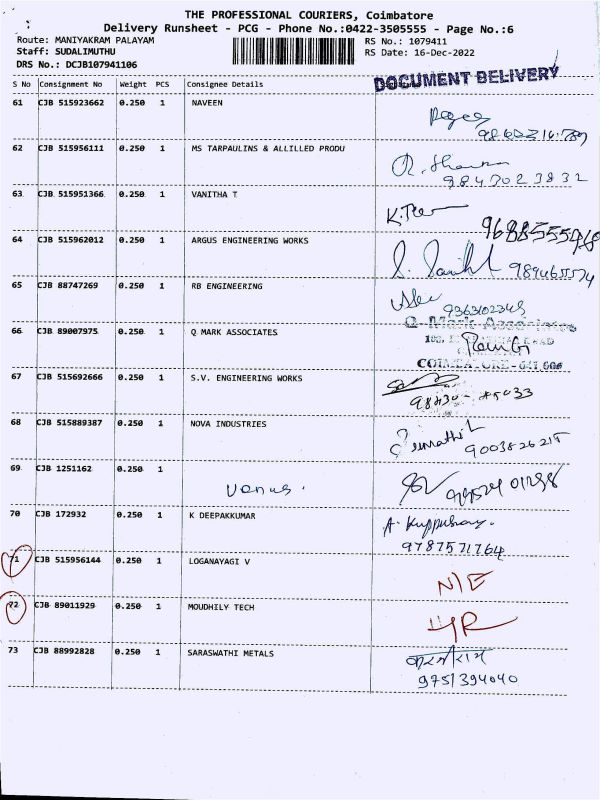 THE PROFESSIONAL COURIERS, Coimbatore
Delivery Runsheet - PCG - Phone No.:0422-3505555 - Page No.:6
Route: MANIYAKRAM PALAYAM RS No.: 1079411
Staff: SUDALIMUTHU RS Date: 16-Dec-2022
DRS No.: DCJB107941106
DOCUMENT DELIVERY
S No Consignment No Weight PCS Consignee Details
61 CJB 515923662 0.250 1 NAVEEN
62 CJB 515956111 0.250 1 MS TARPAULINS & ALLILLED PRODU
9847023832
63 CJB 515951366 0.250 1 VANITHA T
64 CJB 515962012 0.250 1 ARGUS ENGINEERING WORKS
65 CJB 88747269 0.250 1 RB ENGINEERING
9363102345
Q Mark Associates
66 CJB 89007975 0.250 1 Q MARK ASSOCIATES
COIMBATORE - 641 006
67 CJB 515692666 0.250 1 S.V. ENGINEERING WORKS
68 CJB 515889387 0.250 1 NOVA INDUSTRIES
9003826215
69 CJB 1251162 0.250 1
Venus.
70 CJB 172932 0.250 1 K DEEPAKKUMAR
A. Kuppusamy.
9787571764
71 CJB 515956144 0.250 1 LOGANAYAGI V
N/E
72 CJB 89011929 0.250 1 MOUDHILY TECH
73 CJB 88992828 0.250 1 SARASWATHI METALS
9751394040